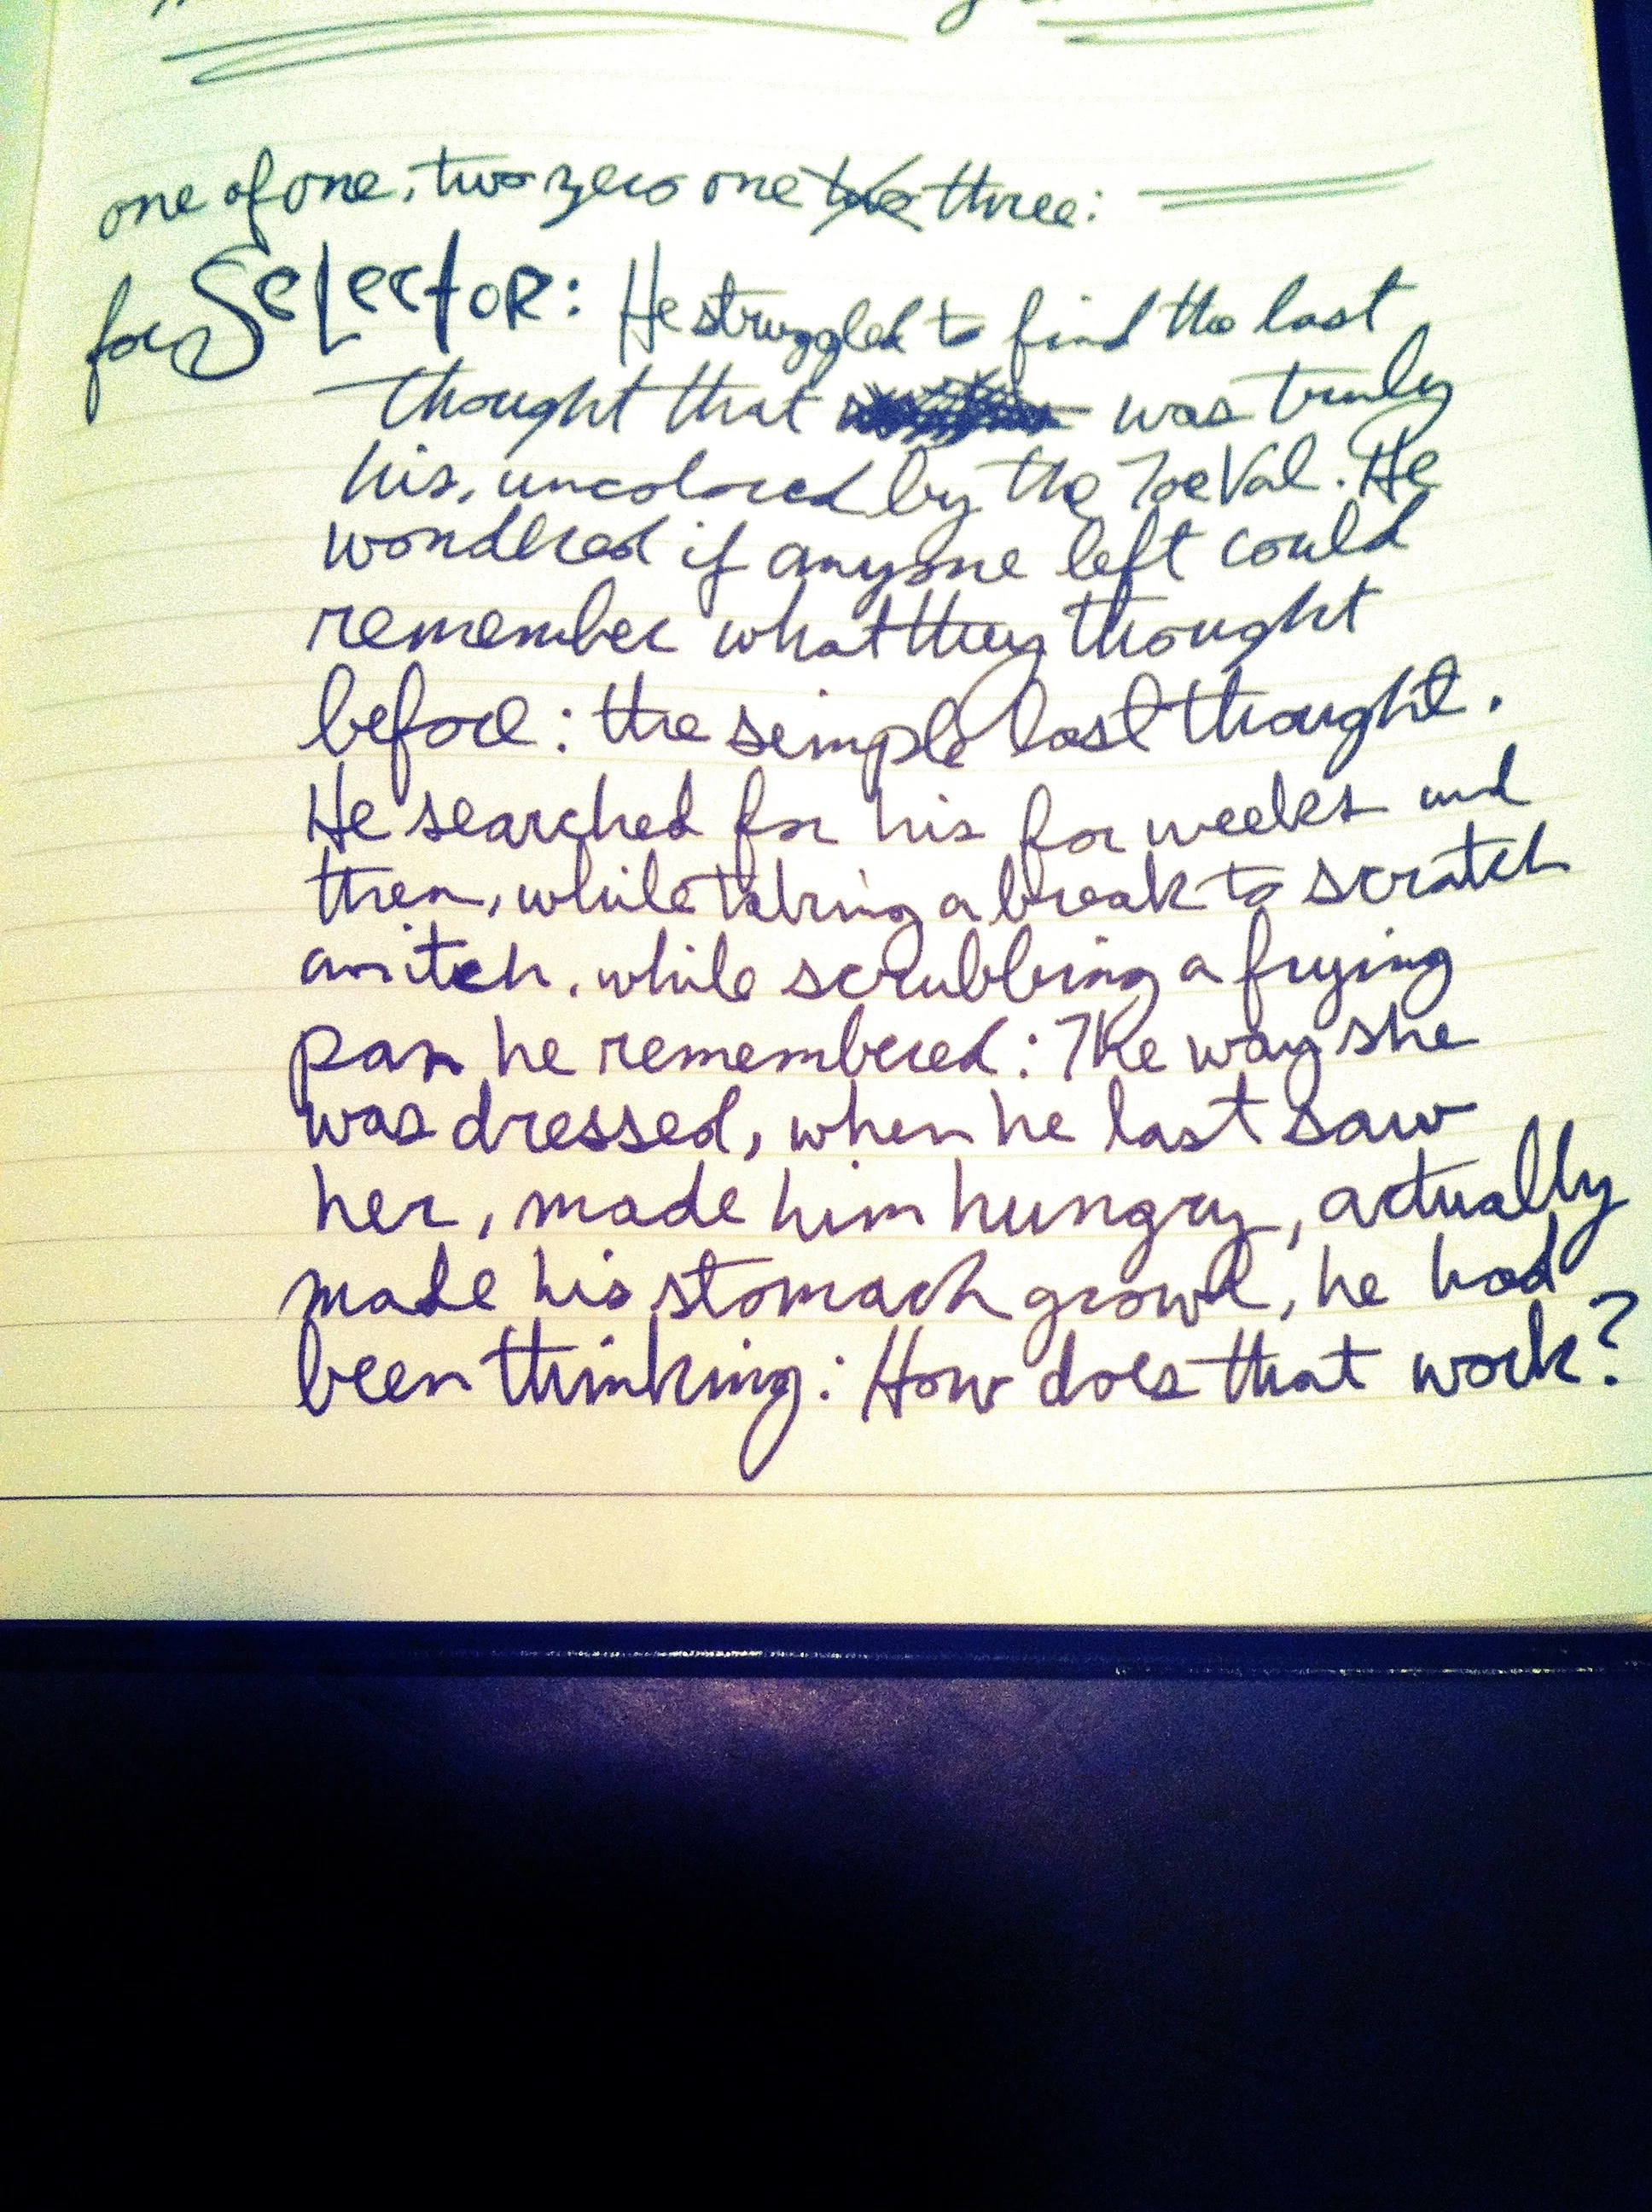 one of one, two zero one three:
for Selector: He struggled to find the last
thought that was truly
his, uncolored by the ToeVal. He
wondered if anyone left could
remember what they thought
before: the simple last thought.
He searched for his for weeks and
then, while taking a break to scratch
an itch, while scrubbing a frying
pan he remembered: The way she
was dressed, when he last saw
her, made him hungry, actually
made his stomach growl, he had
been thinking: How does that work?